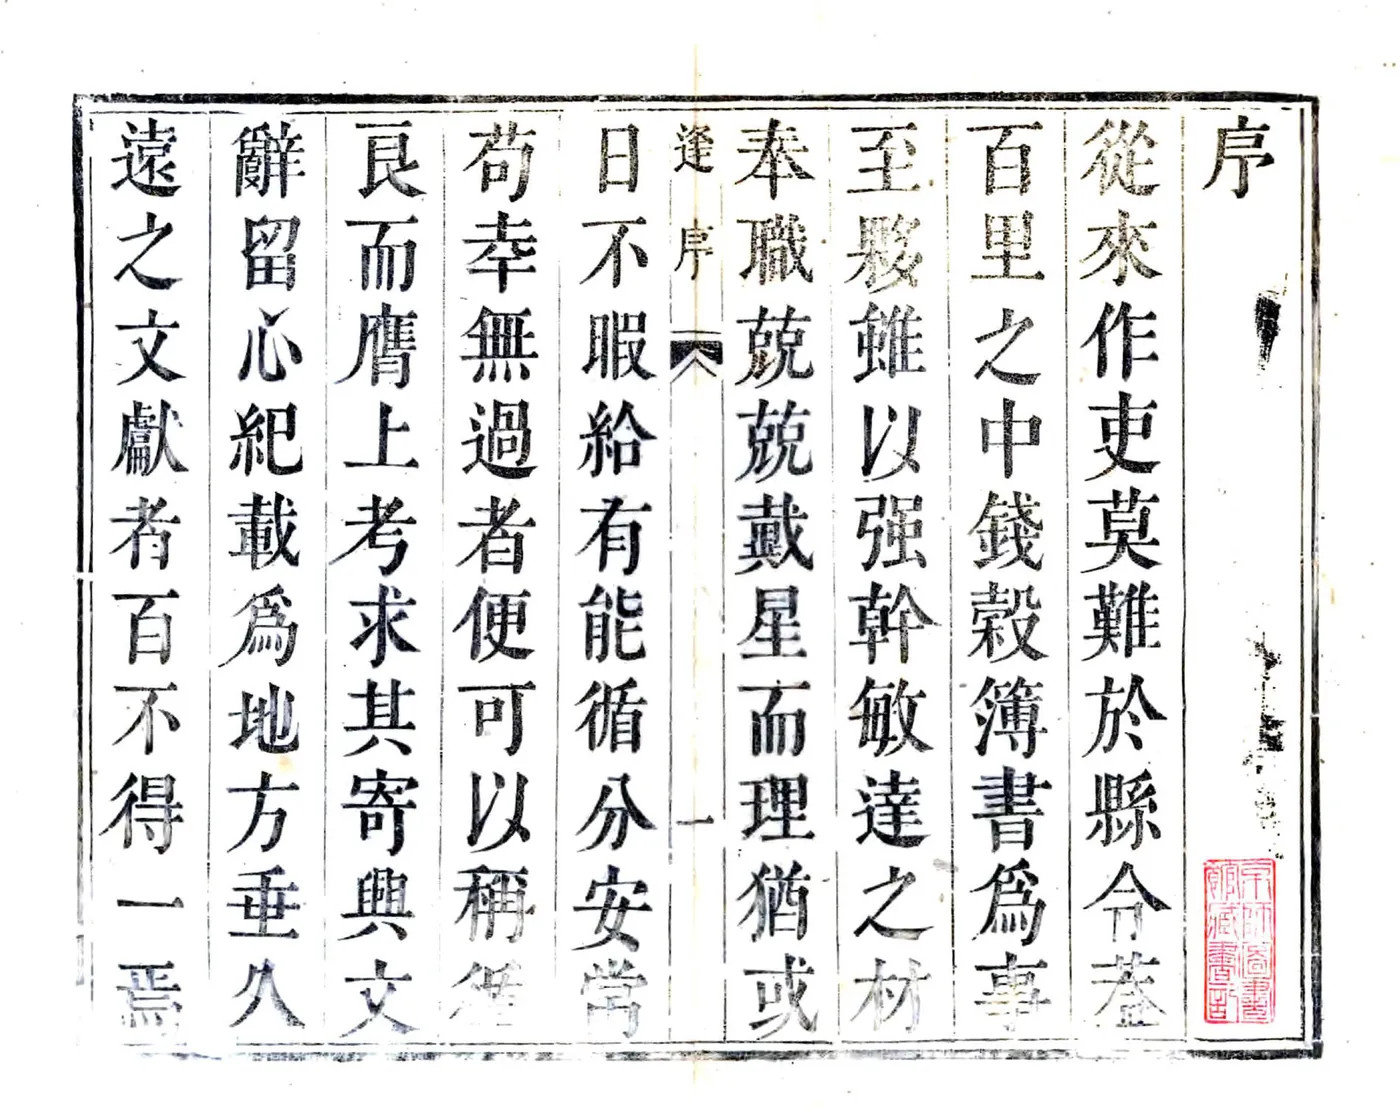 序
從來作吏莫難於縣令葢
百里之中錢穀簿書為事
至夥雖以强幹敏達之材
奉職兢兢戴星而理猶或
逢序 一
日不暇給有能循分安常
苟幸無過者便可以稱循
良而膺上考求其寄興文
辭留心紀載為地方垂久
遠之文獻者百不得一焉
京師圖書
館藏書記